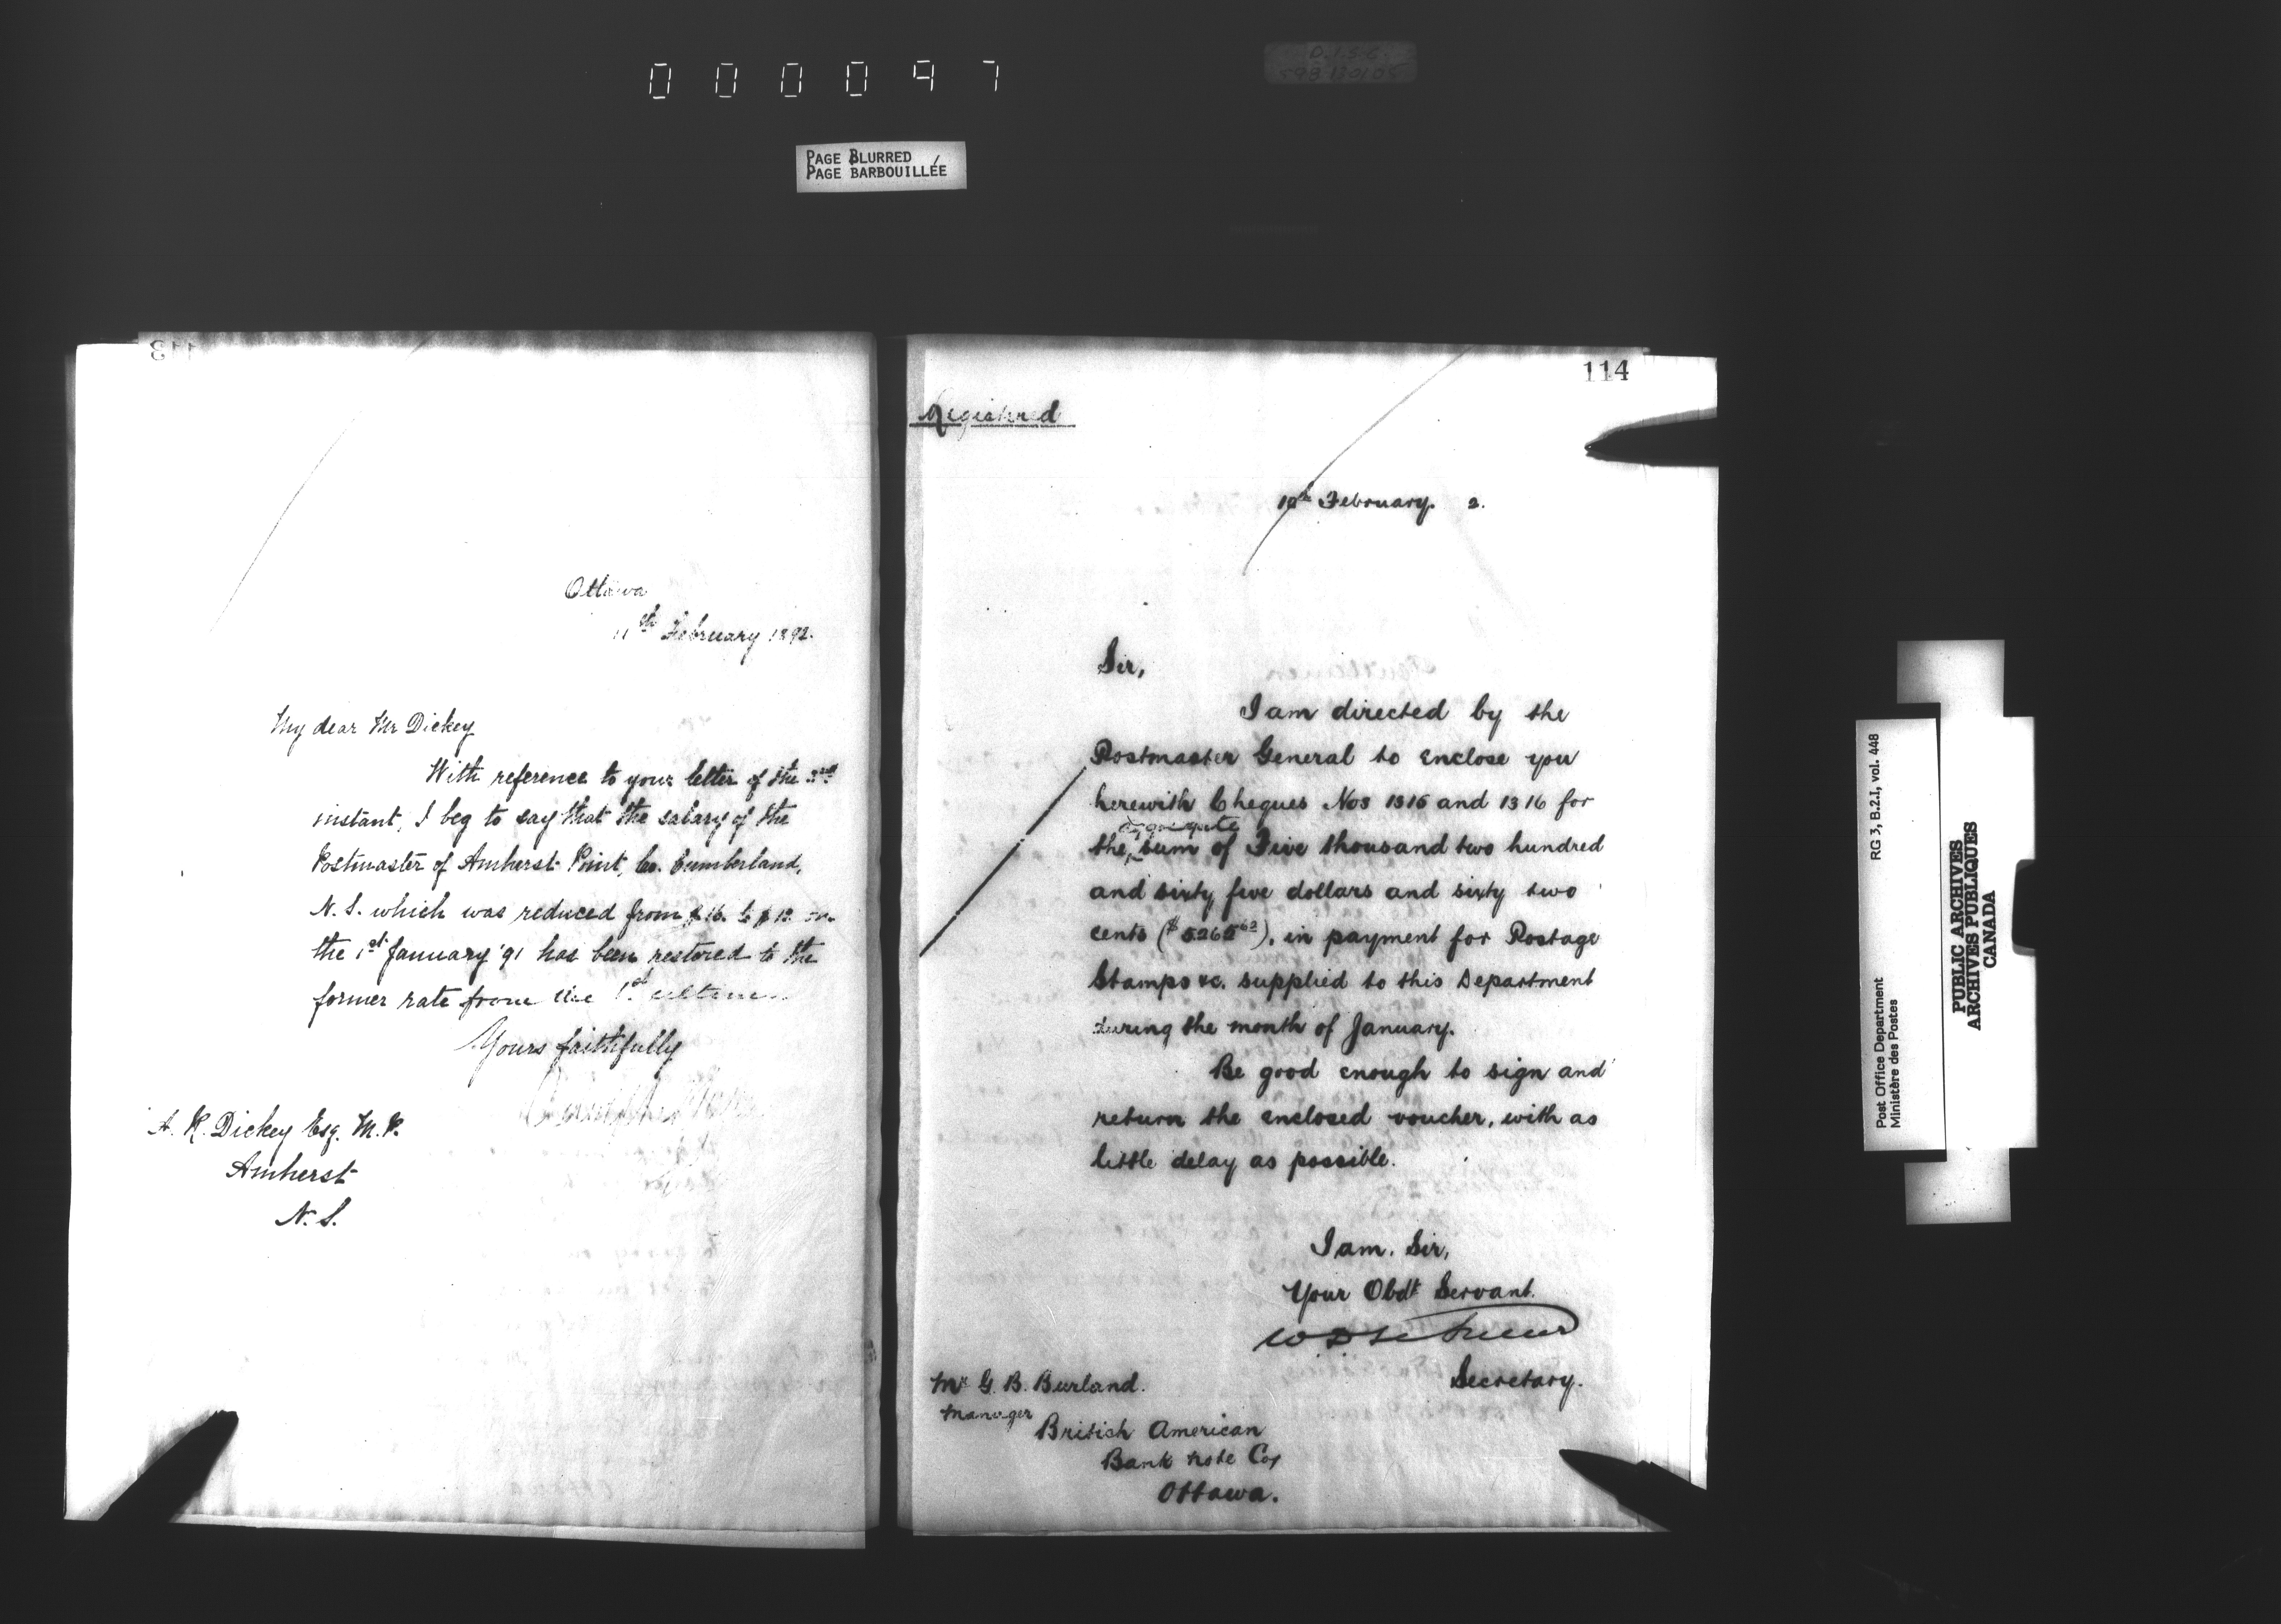 000097
PAGE BLURRED
PAGE BARBOUILLÉE
113
Ottawa
11th February 1892.
My dear Mr Dickey
With reference to your letter of the
instant, I beg to say that the salary of the
Postmaster of Amherst Point, Co. Cumberland,
N. S. which was reduced from $16. to $12 on
the 1st January '91 has been restored to the
former rate from the 1st
Yours faithfully
A. R. Dickey Esq. M. P.
Amherst
N. S.
114
Registered
February. 2.
Sir,
I am directed by the
Postmaster General to enclose you
herewith Cheques Nos 1315 and 1316 for
aggregate
the sum of Five thousand two hundred
and sixty five dollars and sixty two
cents ($5265 62), in payment for Postage
Stamps &c. supplied to this Department
during the month of January.
Be good enough to sign and
return the enclosed voucher, with as
little delay as possible.
I am. Sir,
Your Obdt Servant.
Secretary.
Mr G. B. Burland.
Manager
British American
Bank Note Co,
Ottawa.
Post Office Department RG 3, B.2.I, vol. 448
Ministère des Postes
PUBLIC ARCHIVES
ARCHIVES PUBLIQUES
CANADA